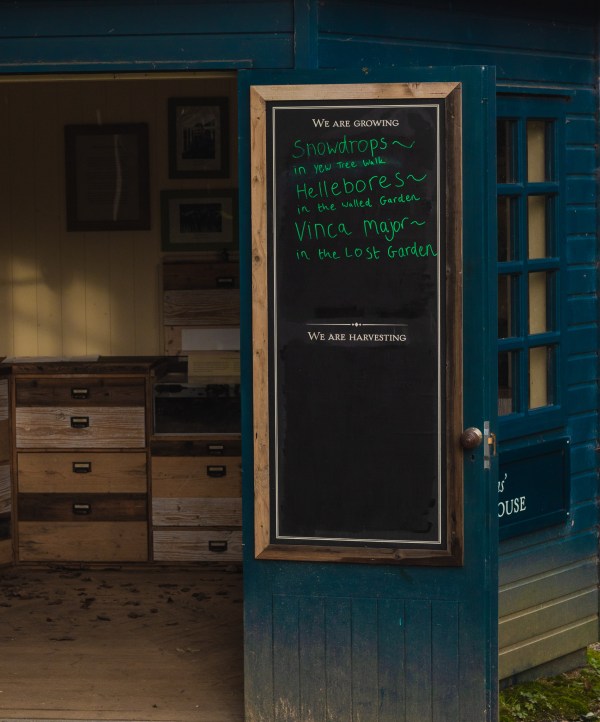 We are growing
Snowdrops~
in Yew Tree Walk
Hellebores~
in the Walled Garden
Vinca Major~
in the Lost Garden
We are harvesting
OUSE